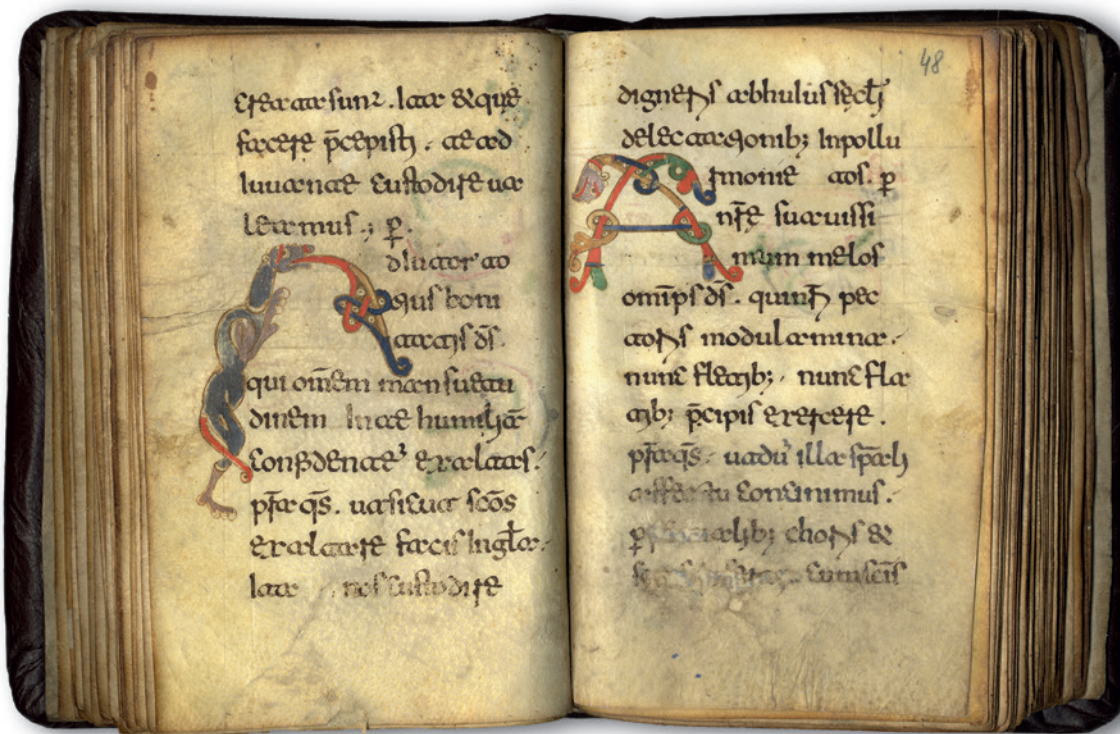 48
creata sunt. ita & que
facere p̄cepisti. te ad
iuuante custodire ua
leamus.; p̱.
Adiutor to
tius boni
tatis d̄s.
qui om̄em mansuetu
dinem
confidente exaltas.
p̄ta q̄s. ut sicut sc̄os
exaltare facis in gl̄a.
ita nos custodire
digneris ab huius sc̄li
delectationib; inpollu
tos. p̱
Nr̄e suauissi
mum melos
om̄ips d̄s. qui nr̄i pec
toris modulamina.
nunc fletib; nunc fla
tib; p̄cipis exercere.
p̄ta q̄s. ut dū illa sp̄ali
affectu continimus.
choris &
cum sc̄is